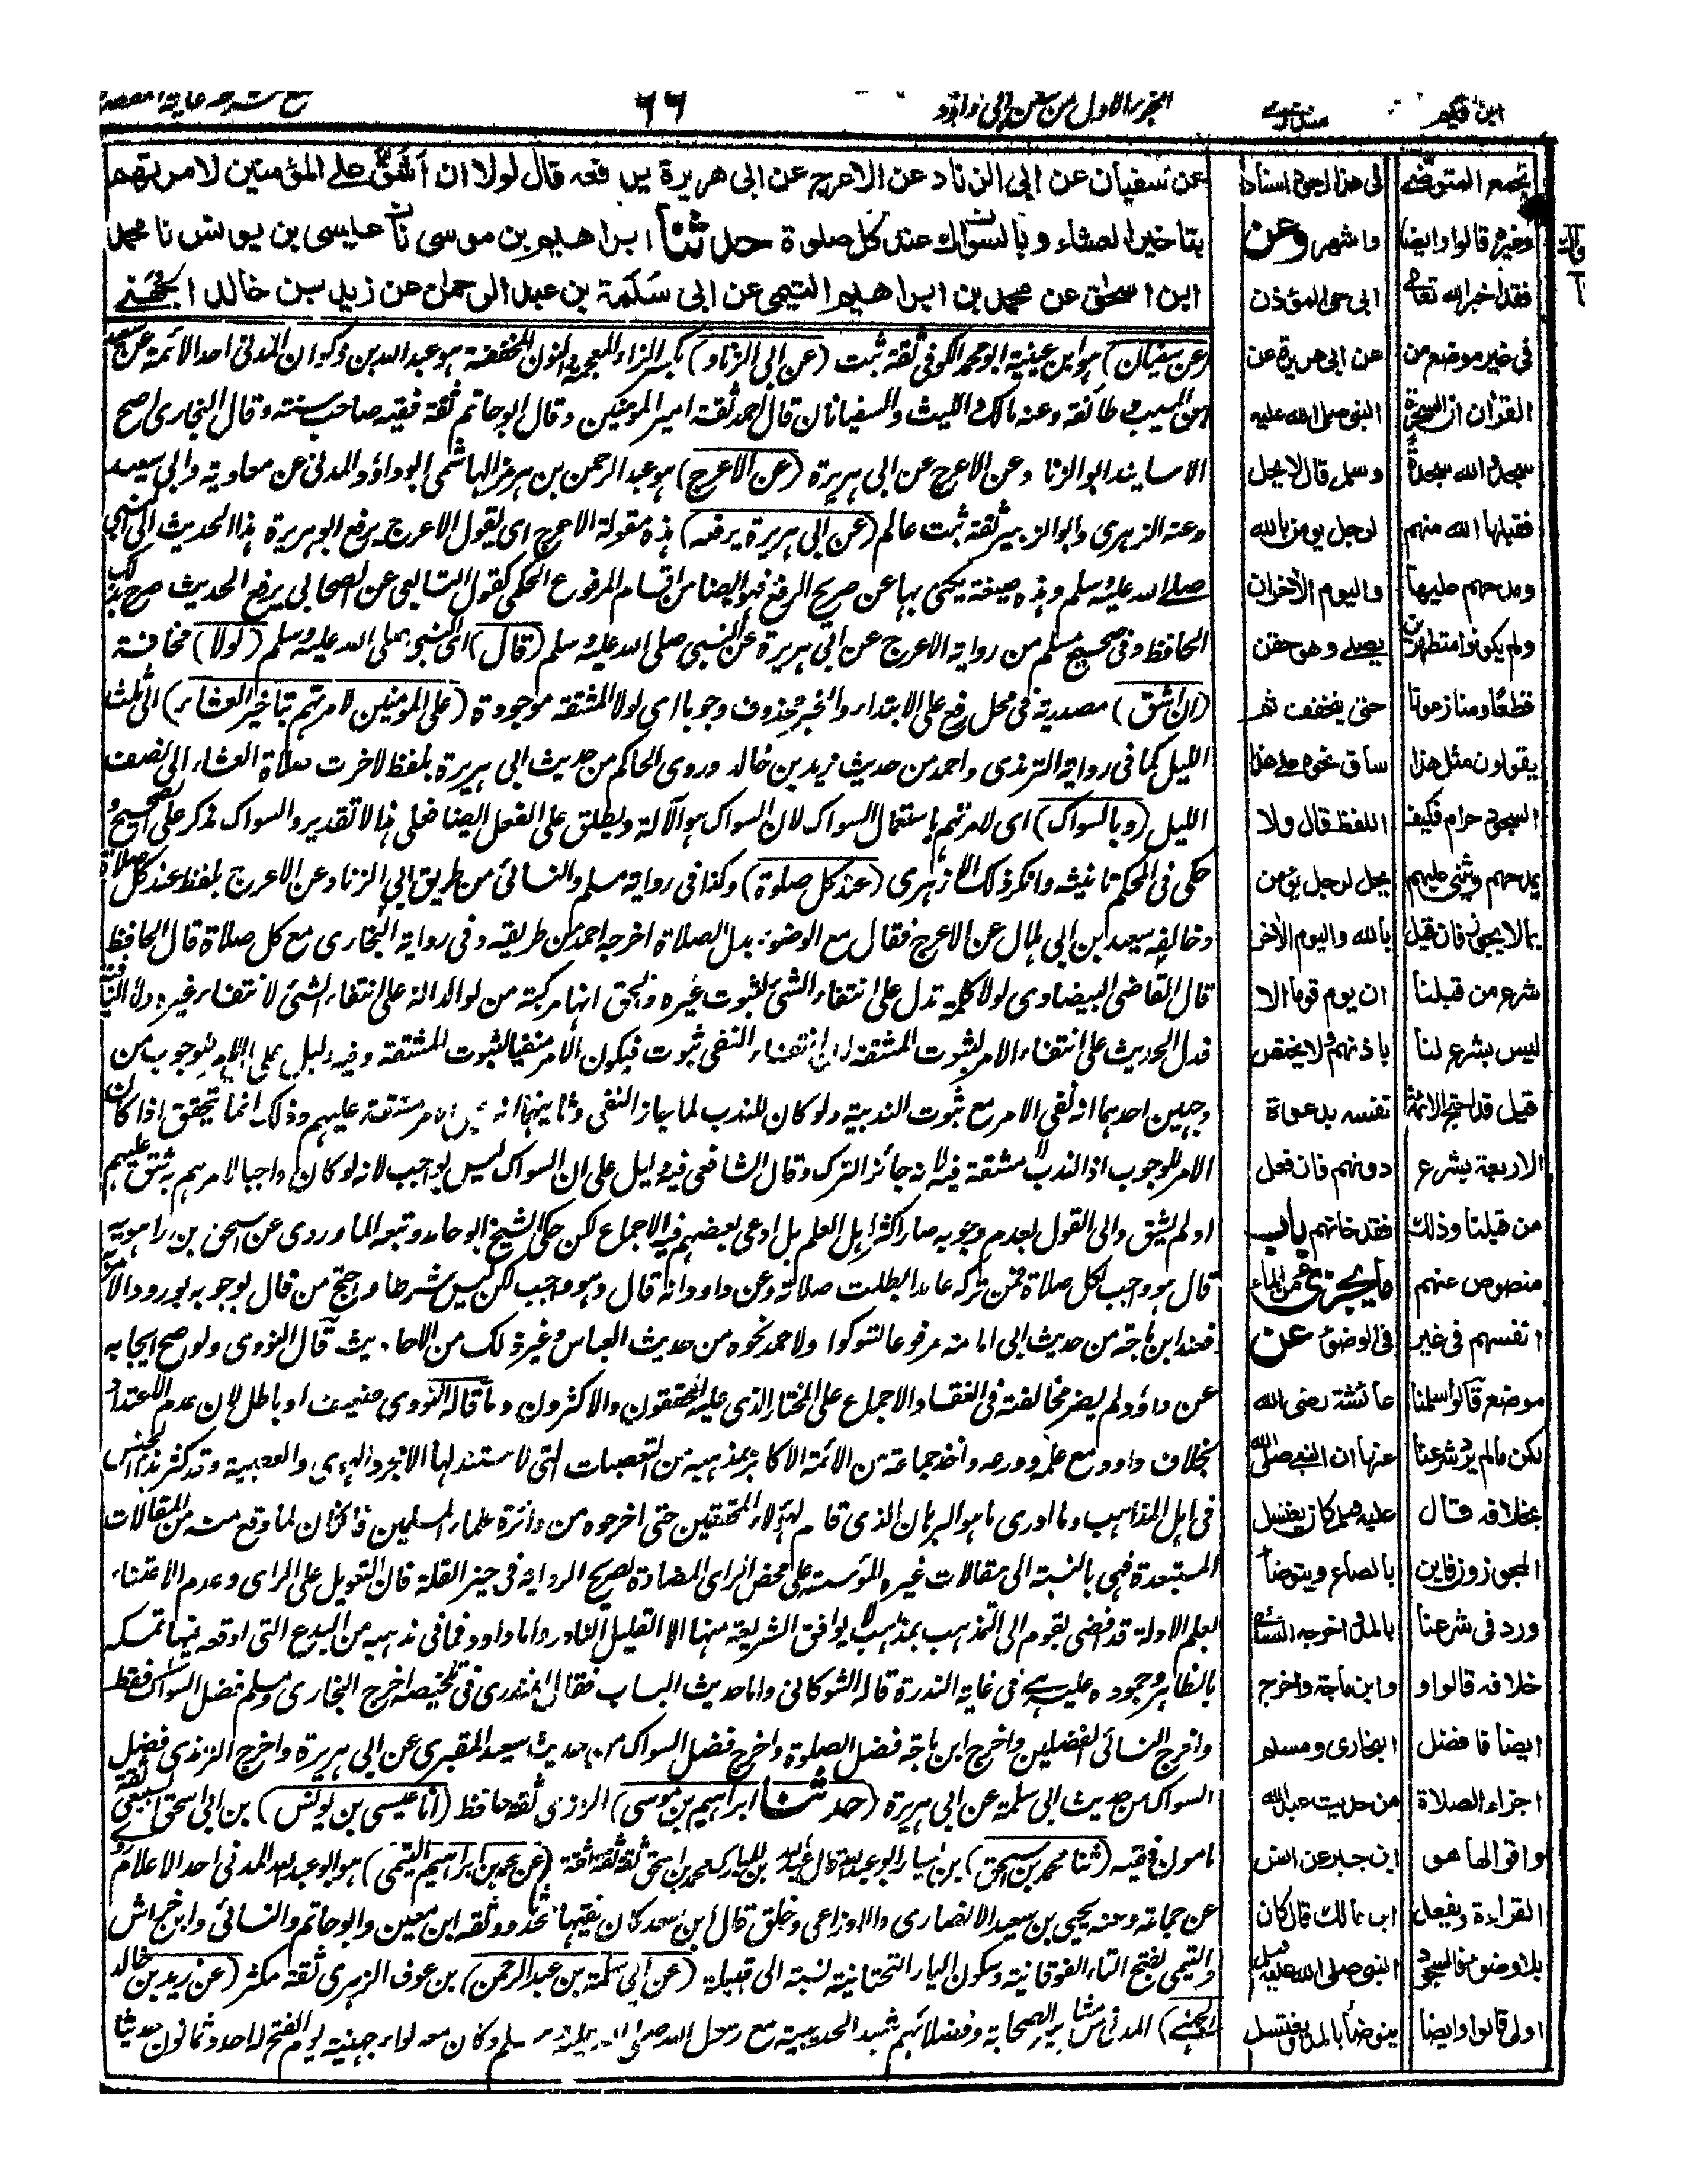 ابن قيم
منذري
الجزء الاول من سنن ابى داؤد
٦٦
مع شرحه غاية المقصود
عن سفيان عن ابى الزناد عن الاعرج عن ابى هريرة يرفعه قال لولا ان اشق على المؤمنين لامرتهم
بتاخير العشاء وبالسواك عند كل صلوة حدثنا ابراهيم بن موسى نا عيسى بن يونس نا محمد
ابن اسحق عن محمد بن ابراهيم التيمى عن ابى سلمة بن عبد الرحمن عن زيد بن خالد الجهنى
(عن سفيان) هو ابن عيينة ابو محمد الكوفى ثقة ثبت (عن ابى الزناد) بكسر الزاء المعجمة والنون المخففة هو عبد الله بن ذكوان المدنى احد الائمة عن سعيد
ابن المسيب وطائفة وعنه مالك والليث والسفيانان قال احمد ثقة امير المؤمنين وقال ابو حاتم ثقة فقيه صاحب سنته وقال البخارى اصح
الاسانيد ابو الزناد عن الاعرج عن ابى هريرة (عن الاعرج) هو عبد الرحمن بن هرمز الهاشمى ابو داؤد المدنى عن معاوية وابى سعيد
وعنه الزهرى وابو الزبير ثقة ثبت عالم (عن ابى هريرة يرفعه) هذه مقولة الاعرج اى يقول الاعرج يرفع ابو هريرة هذا الحديث الى النبى
صلى الله عليه وسلم وهذه صيغة يكنى بها عن صريح الرفع فهو ايضا من اقسام المرفوع الحكمى كقول التابعى عن الصحابى يرفع الحديث صرح بذلك
الحافظ وفى صحيح مسلم من رواية الاعرج عن ابى هريرة عن النبى صلى الله عليه وسلم (قال) اى النبى صلى الله عليه وسلم (لولا) مخافة
(ان اشق) مصدرية فى محل رفع على الابتداء والخبر محذوف وجوبا اى لولا المشقة موجودة (على المؤمنين لامرتهم بتاخير العشاء) الى ثلث
الليل كما فى رواية الترمذى واحمد من حديث زيد بن خالد وروى الحاكم من حديث ابى هريرة بلفظ لاخرت صلاة العشاء الى نصف
الليل (وبالسواك) اى لامرتهم باستعمال السواك لان السواك هو الآلة ويطلق على الفعل ايضا فعلى هذا لا تقدير والسواك مذكر على الصحيح و
حكى فى المحكم تانيثه وانكر ذلك الازهرى (عند كل صلوة) وكذا فى رواية مسلم والنسائى من طريق ابى الزناد عن الاعرج بلفظ عند كل صلاة
وخالفه سعيد ابن ابى هلال عن الاعرج فقال مع الوضوء بدل الصلاة اخرجه احمد من طريقه وفى رواية البخارى مع كل صلاة قال الحافظ
قال القاضى البيضاوى لولا كلمة تدل على انتفاء الشئ لثبوت غيره والحق انها مركبة من لو الدالة على انتفاء الشئ لانتفاء غيره ولا النافية
فدل الحديث على انتفاء الامر لثبوت المشقة لان انتفاء النفى ثبوت فيكون الامر منفيا لثبوت المشقة وفيه دليل على ان الامر للوجوب من
وجهين احدهما انه نفى الامر مع ثبوت الندبية ولو كان للندب لما جاز النفى وثانيهما انه جعل الامر مشقة عليهم وذلك انما يتحقق اذا كان
الامر للوجوب اذ الندب لا مشقة فيه لانه جائز الترك وقال الشافعى فيه دليل على ان السواك ليس بواجب لانه لو كان واجبا لامرهم به شق عليهم
او لم يشق والى القول بعدم وجوبه صار اكثر اهل العلم بل ادعى بعضهم فيه الاجماع لكن حكى الشيخ ابو حامد وتبعه الماوردى عن اسحق بن راهويه
قال هو واجب لكل صلاة فمن تركه عامدا بطلت صلاته وعن داود انه قال وهو واجب لكن ليس شرطا واحتج من قال بوجوبه بورود الامر به
فعند ابن ماجة من حديث ابى امامة مرفوعا تسوكوا ولاحمد نحوه من حديث العباس وغير ذلك من الاحاديث قال النووى ولو صح ايجابه
عن داؤد لم يضر مخالفته فى انعقاد الاجماع على المختار الذى عليه المحققون والاكثرون وما قاله النووى ضعيف او باطل لان عدم الاعتداد
بخلاف داود مع علمه وورعه واخذ جماعة من الائمة الاكابر بمذهبه من التعصبات التى لا مستند لها الا مجرد الهوى والعصبية وقد كثر هذا الجنس
فى اهل المذاهب وما ادرى ما هو البرهان الذى قام لهؤلاء المحققين حتى اخرجوه من دائرة علماء المسلمين فان كان لما وقع منه من المقالات
المستبعدة فهى بالنسبة الى مقالات غيره المؤسسة على محض الراى المضادة لصريح الرواية فى حيز القلة فان التعويل على الراى وعدم الاعتناء
بعلم الادلة قد افضى بقوم الى التمذهب بمذاهب لا يوافق الشريعة منها الا القليل النادر واما داود فما فى مذهبه من البدع التى اوقعه فيها تمسكه
بالظاهر وجموده عليه هى فى غاية الندرة قاله الشوكانى واما حديث الباب فقال المنذرى فى تلخيصه اخرج البخارى ومسلم فضل السواك فقط
واخرج النسائى الفضلين واخرج ابن ماجة فضل الصلوة واخرج فضل السواك من حديث سعيد المقبرى عن ابى هريرة واخرج الترمذى فضل
السواك من حديث ابى سلمة عن ابى هريرة (حدثنا ابراهيم بن موسى) الرازى ثقة حافظ (انا عيسى بن يونس) بن ابى اسحق السبيعى ثقة
مامون فقيه (ثنا محمد بن اسحق) بن يسار ابو عبد الله قال عبد الله بن المبارك محمد بن اسحق ثقة ثقة ثقة (عن محمد بن ابراهيم التيمى) هو ابو عبد الله المدنى احد الاعلام روى
عن جماعة وعنه يحيى بن سعيد الانصارى والاوزاعى وخلق قال ابن سعد كان فقيها محدثا ووثقه ابن معين وابو حاتم والنسائى وابن خراش
والتيمى بفتح التاء الفوقانية وسكون الياء التحتانية نسبة الى قبيلة (عن ابى سلمة بن عبد الرحمن) بن عوف الزهرى ثقة مكثر (عن زيد بن خالد
الجهنى) المدنى من مشاهير الصحابة وفضلائهم شهد الحديبية مع رسول الله صلى الله عليه وسلم وكان معه لواء جهينة يوم الفتح له احد وثمانون حديثا
فى هذا الوجه اسناد
واشهر وعن
ابى حى المؤذن
عن ابى هريرة عن
النبى صلى الله عليه
وسلم قال لا يحل
لرجل يومن بالله
واليوم الآخر ان
يصلى وهو حقن
حتى يتخفف ثم
ساق نحوه على هذا
اللفظ قال ولا
يحل لرجل يؤمن
بالله واليوم الآخر
ان يوم قوما الا
باذنهم ولا يختص
نفسه بدعوة
دونهم فان فعل
فقد خانهم باب
ما يجزئ من الماء
فى الوضوء عن
عائشة رضى الله
عنها ان النبى صلى الله
عليه وسلم كان يغتسل
بالصاع ويتوضأ
بالمد اخرجه النسائى
وابن ماجة واخرج
البخارى ومسلم
من حديث عبد الله
ابن جبر عن انس
ابن مالك قال كان
النبى صلى الله عليه وسلم
يتوضأ بالمد ويغتسل
بجمع المتوضئ
وغيره قالوا وايضا
فقد اخبر الله تعالى
فى غير موضع من
القرآن ان السحرة
سجدوا لله سجدة
فقبلها الله منهم
ومدحهم عليها
ولم يكونوا متطهرين
قطعا ومنازعونا
يقولون مثل هذا
السجود حرام فكيف
يمدحهم ويثنى عليهم
بما لا يجوز فان قيل
شرع من قبلنا
ليس بشرع لنا
قيل قد احتج الائمة
الاربعة بشرع
من قبلنا وذلك
منصوص عنهم
انفسهم فى غير
موضع قالوا سلمنا
لكن ما لم يرد شرعنا
بخلافه قال
المجوزون فاين
ورد فى شرعنا
خلافه قالوا و
ايضا فافضل
اجزاء الصلاة
واقوالها هو
القراءة ويفعل
بلا وضوء فالسجود
اولى قالوا وايضا